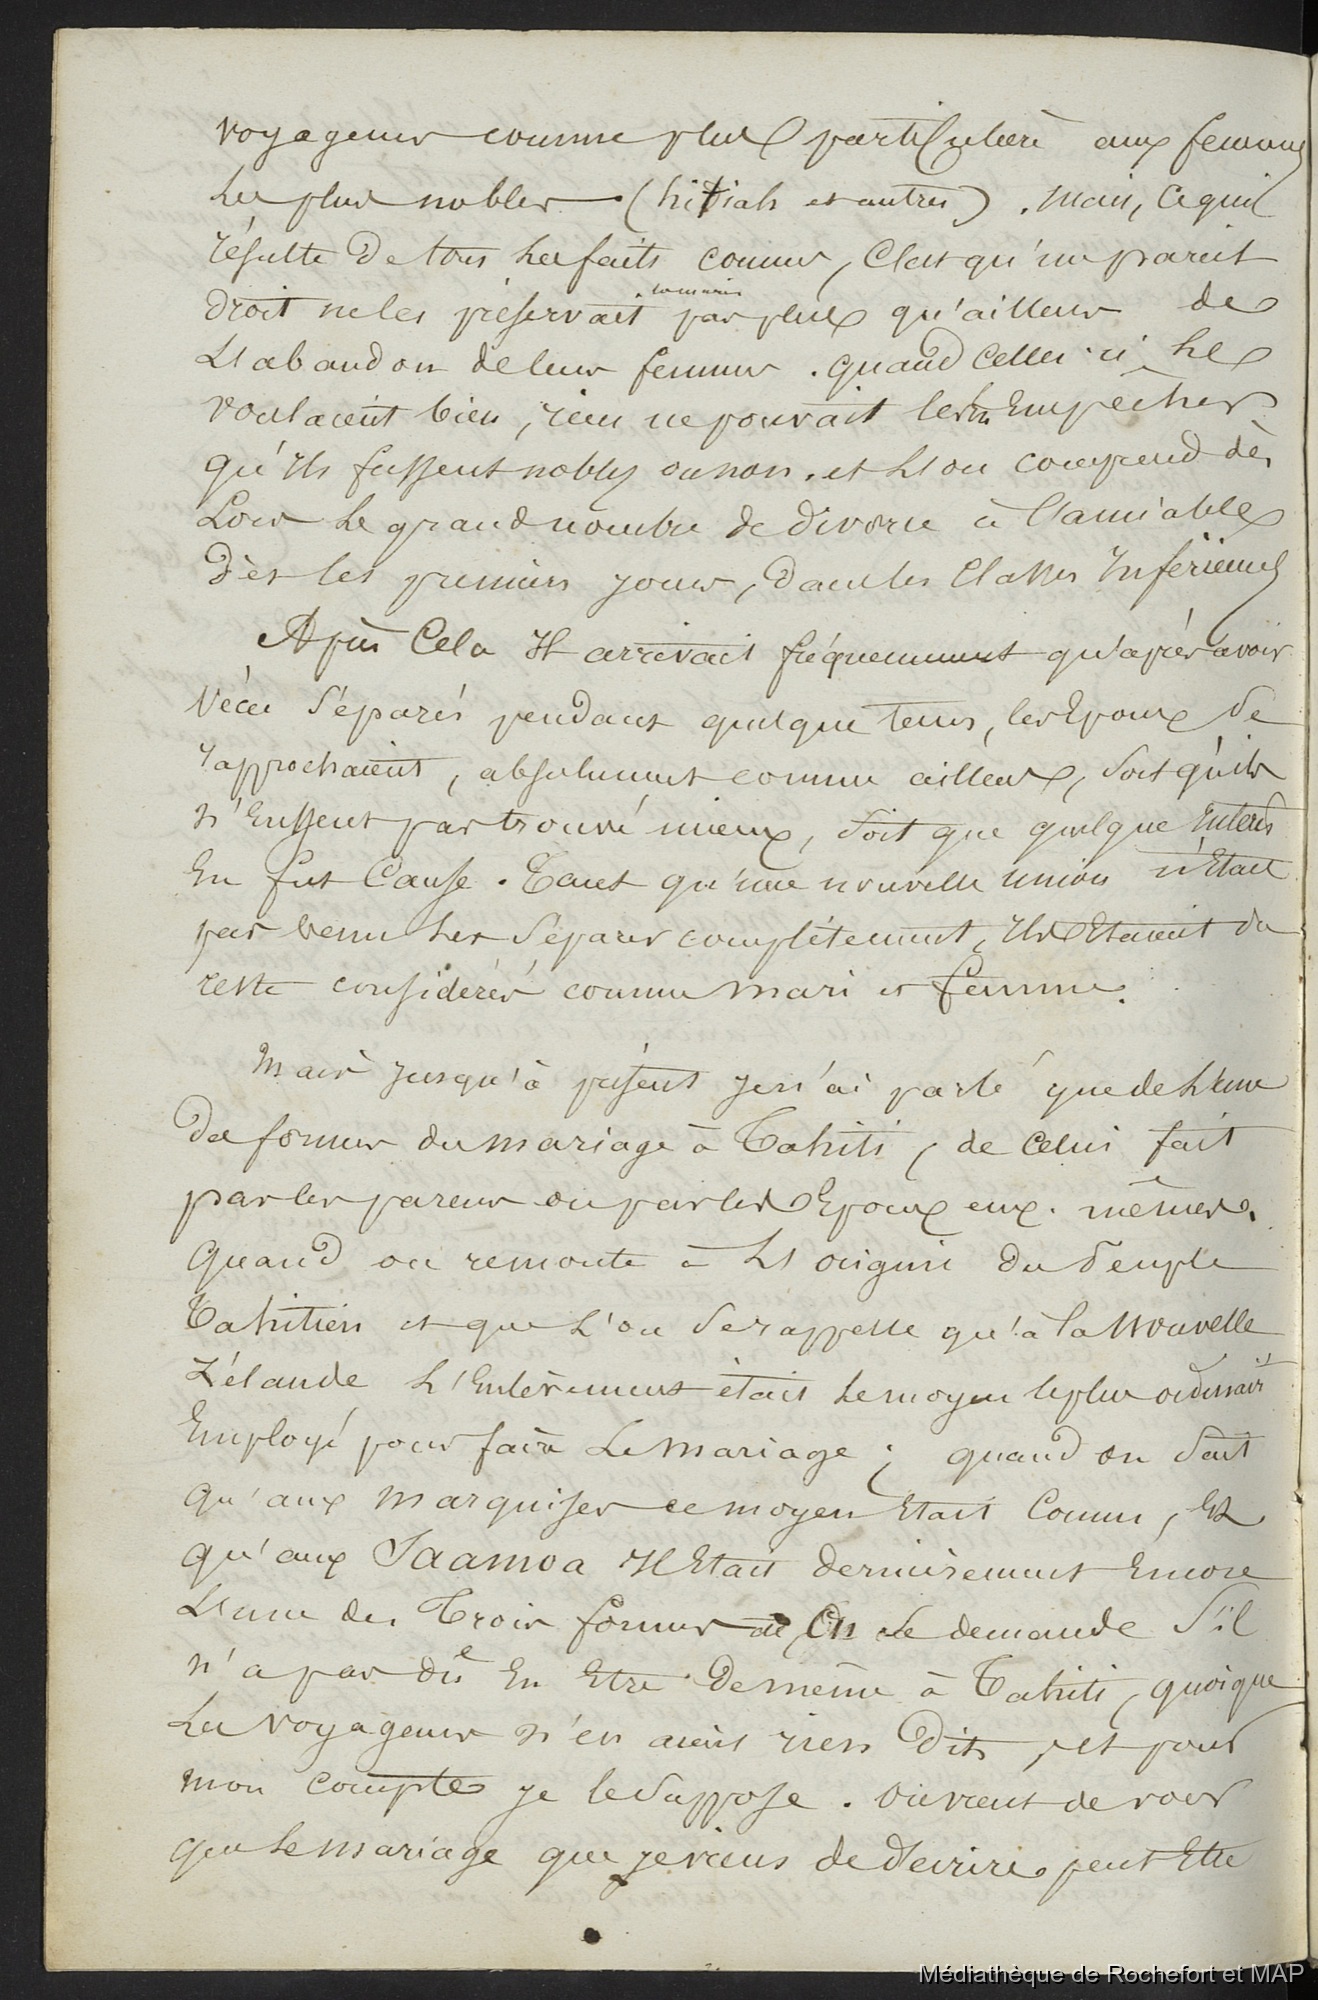 voyageurs comme plus particulière aux femmes
les plus nobles (hitiah et autres). Mais, ce qui
résulte de tous les faits connus, c'est qu'un pareil
droit ne les préservait les maris pas plus qu'ailleurs de
l'abandon de leurs femmes. quand celles-ci le
voulaient bien, rien ne pouvait les en Empêcher
qu'ils fussent nobles ou non. et l'on comprend dès
Lors le grand nombre de divorce à l'amiable
dès les premiers jours, dans les classes Inférieures
Après Cela Il arrivait fréquemment qu'après avoir
vécu séparés pendant quelque tems, les Epoux se
rapprochaient, absolument comme ailleurs, soit qu'ils
n'Eussent pas trouvé mieux, soit que quelque Intérêt
En fut Cause. Tant qu'une nouvelle union n'Etait
pas venu les séparer complétement, Ils Etaient du
reste considérés comme mari et femme.
Mais jusqu'à présent je n'ai parlé que de l'une
des formes du mariage à Tahiti, de celui fait
par les parens ou par les Epoux eux-mêmes.
Quand on remonte à l'origine du Peuple
Tahitien et que l'on se rappelle qu'à la Nouvelle
Zélande l'Enlèvement était le moyen le plus ordinaire
Employé pour faire le mariage ; quand on sait
qu'aux Marquises ce moyen Etait Connu, Et
qu'aux Saamoa Il Etait dernièrement Encore
L'une des Trois formes On se demande s'il
n'a pas dû En Etre de même à Tahiti, quoique
les voyageurs n'en aient rien dit, et pour
mon compte je le suppose. On vient de voir
que le mariage que je viens de décrire, peut Etre
Médiathèque de Rochefort et MAP